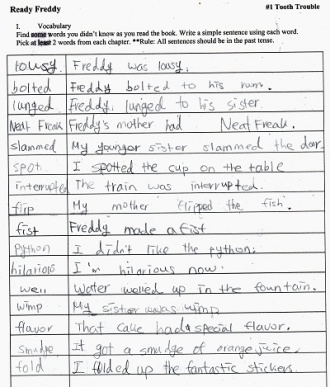 Ready Freddy #1 Tooth Trouble
I. Vocabulary
Find some words you didn't know as you read the book. Write a simple sentence using each word.
Pick at least 2 words from each chapter. **Rule: All sentences should be in the past tense.
lousy. Freddy was lousy.
bolted Freddy bolted to his rum.
lunged Freddy, lunged to his sister.
Neat Freak Freddy's mother had Neat Freak.
slammed My younger sister slammed the door.
spot I spotted the cup on the table
interrupted The train was interrupted.
flip My mother flipped the fish.
fist Freddy made a fist
Python I didn't like the python.
hilarious I'm hilarious now.
well Water welled up in the fountain.
wimp My sister was wimp
flavor That cake had a special flavor.
smudge It got a smudge of orange juice.
fold I folded up the fantastic stickers.